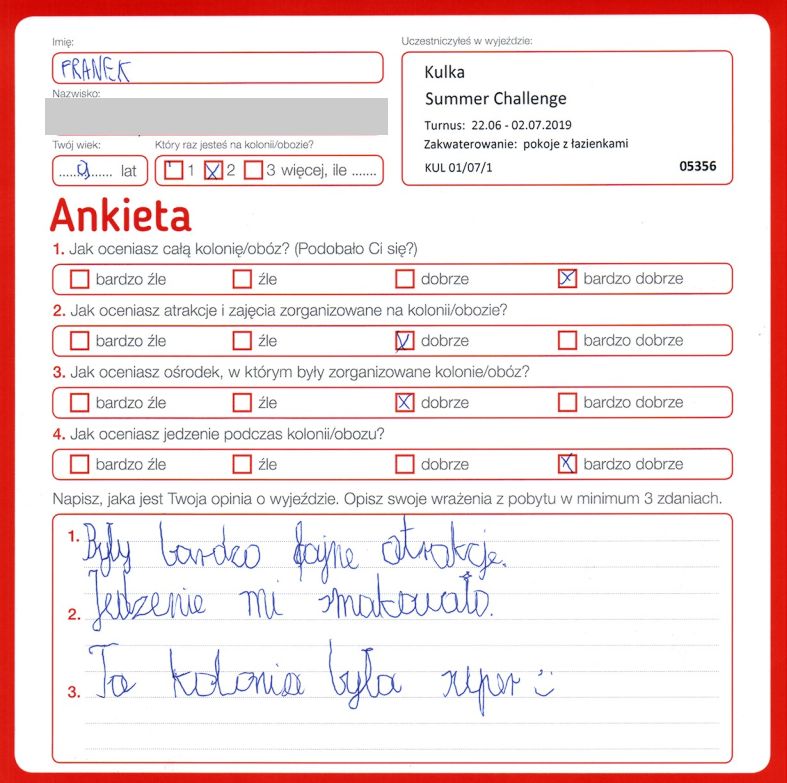 Imię:
FRANEK
Nazwisko:
Twój wiek:
......9...... lat
Który raz jesteś na kolonii/obozie?
1 2 3 więcej, ile .......
Uczestniczyłeś w wyjeździe:
Kulka
Summer Challenge
Turnus: 22.06 - 02.07.2019
Zakwaterowanie: pokoje z łazienkami
KUL 01/07/1 05356
Ankieta
1. Jak oceniasz całą kolonię/obóz? (Podobało Ci się?)
bardzo źle źle dobrze bardzo dobrze
2. Jak oceniasz atrakcje i zajęcia zorganizowane na kolonii/obozie?
bardzo źle źle dobrze bardzo dobrze
3. Jak oceniasz ośrodek, w którym były zorganizowane kolonie/obóz?
bardzo źle źle dobrze bardzo dobrze
4. Jak oceniasz jedzenie podczas kolonii/obozu?
bardzo źle źle dobrze bardzo dobrze
Napisz, jaka jest Twoja opinia o wyjeździe. Opisz swoje wrażenia z pobytu w minimum 3 zdaniach.
1. Były bardzo fajne atrakcje.
2. Jedzenie mi smakowało.
3. Ta kolonia była super :)